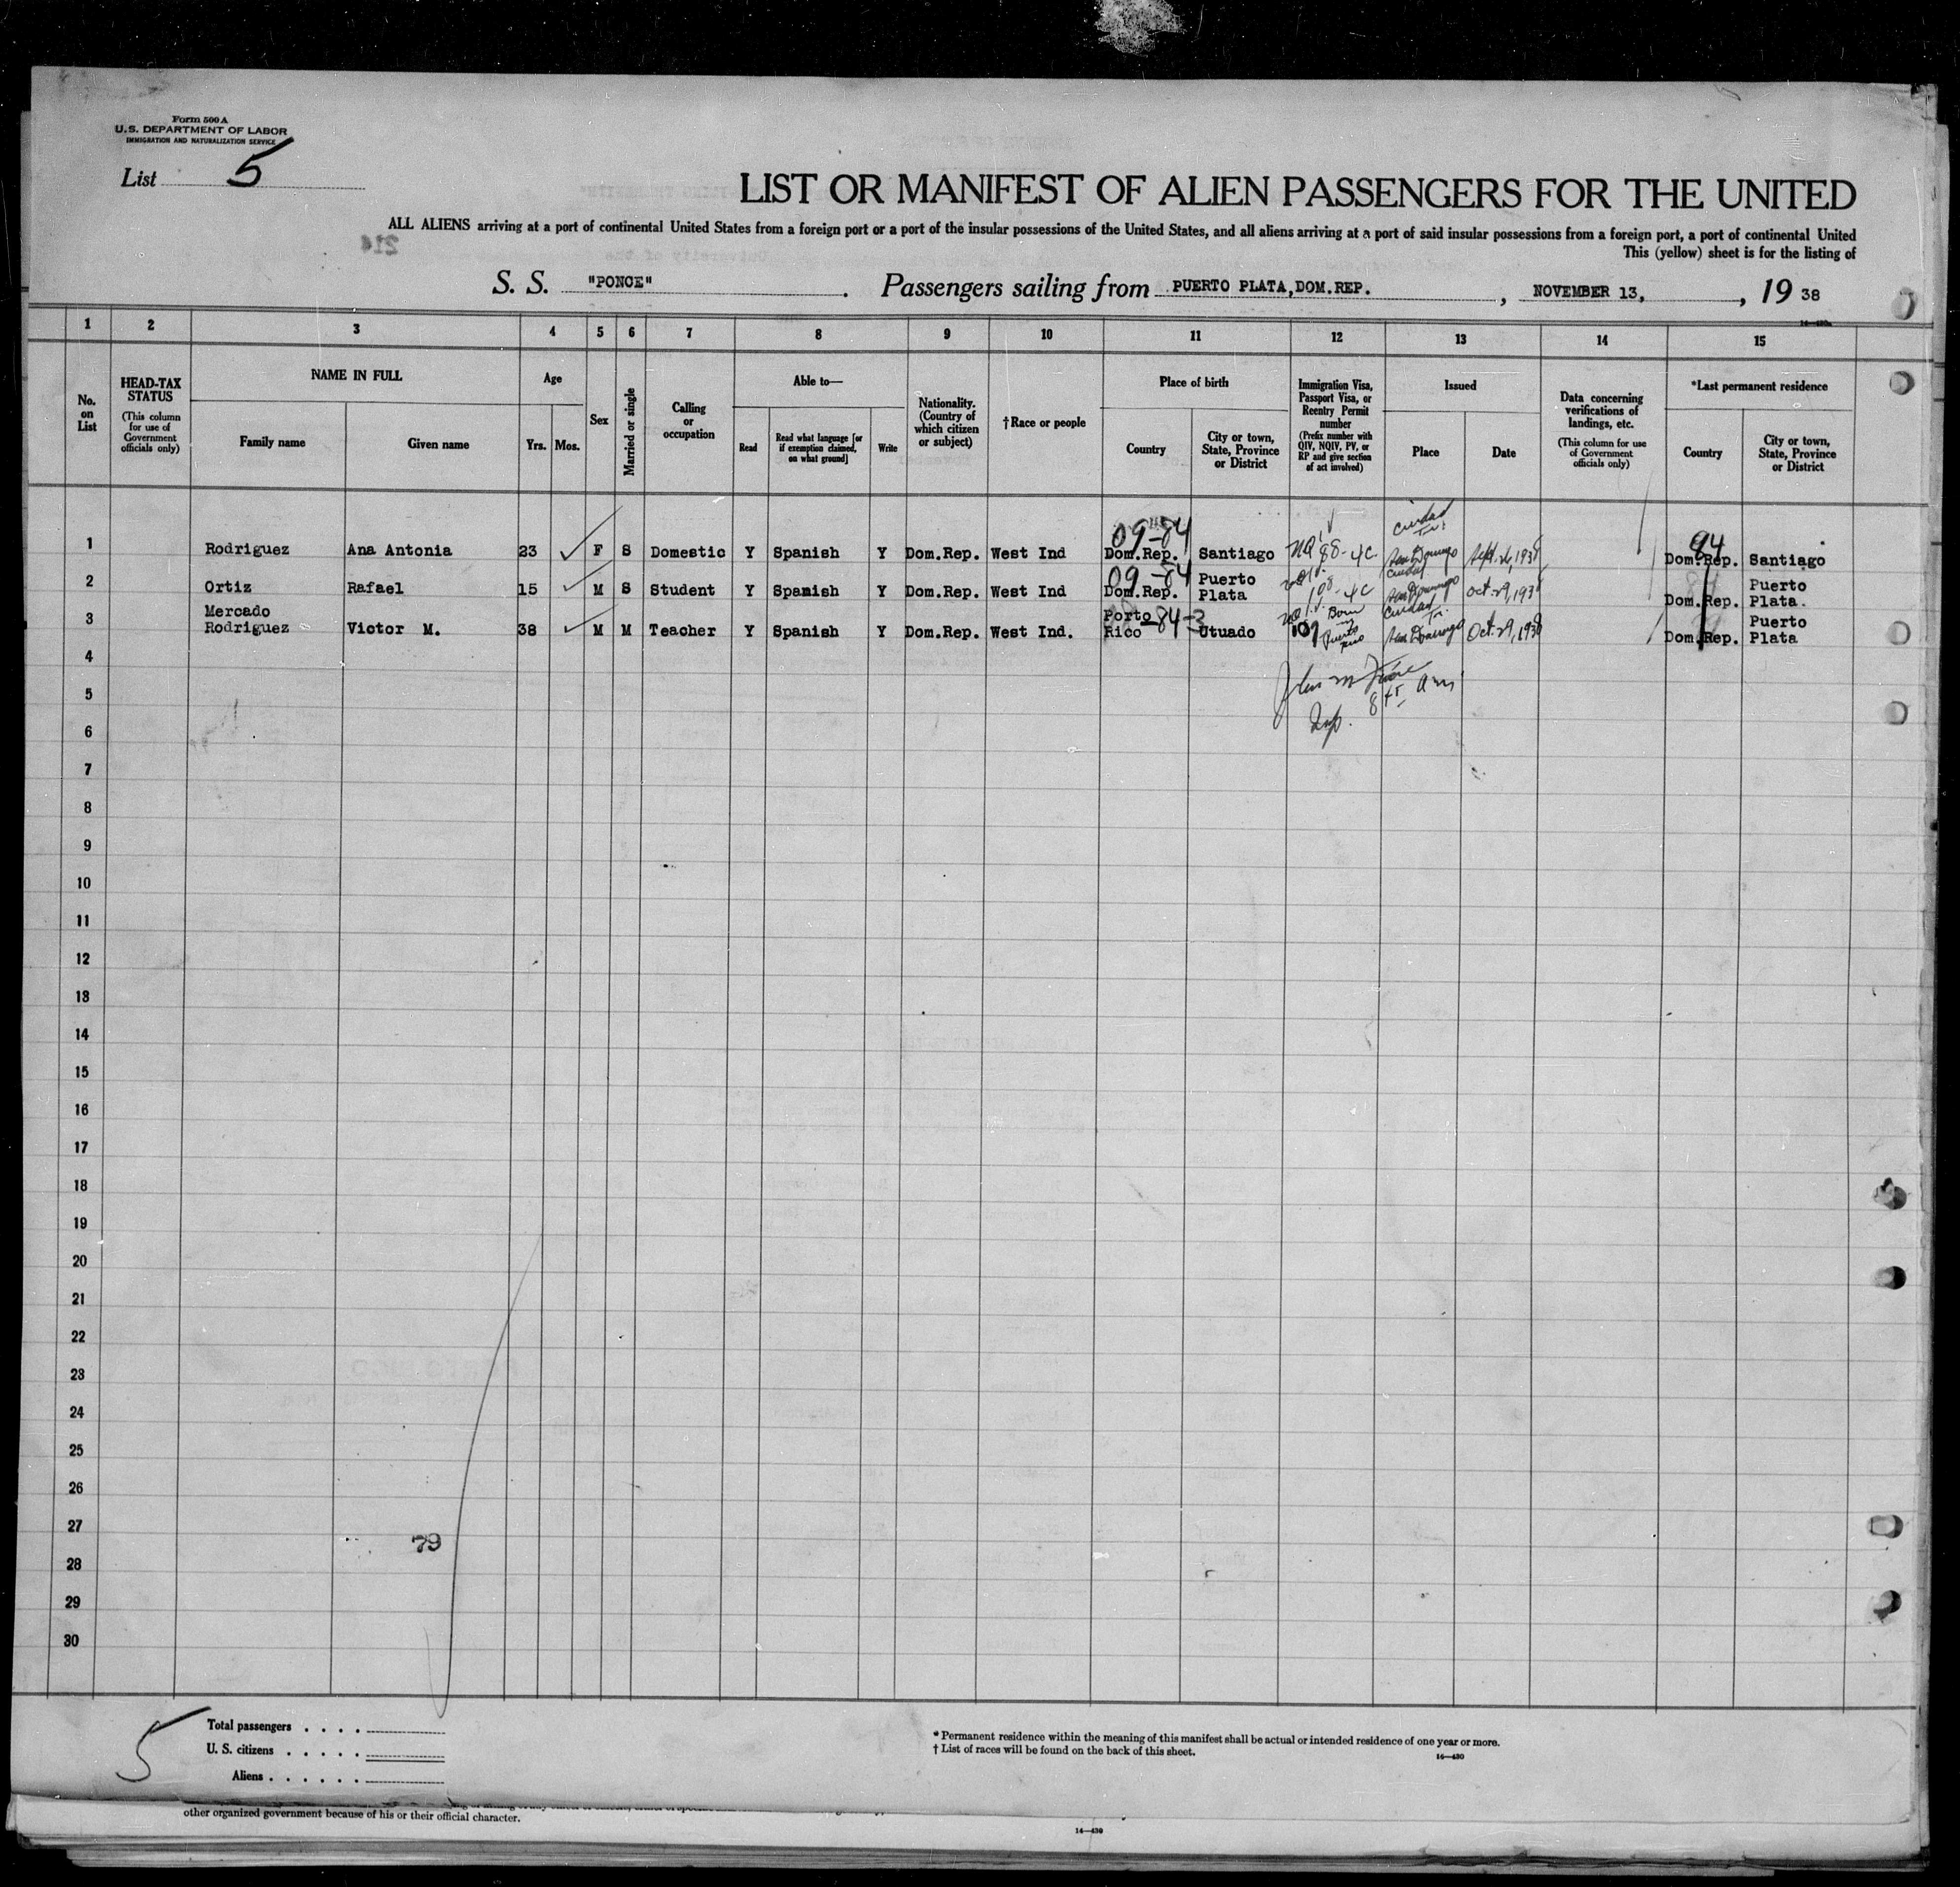 Form 500 A
U. S. DEPARTMENT OF LABOR
IMMIGRATION AND NATURALIZATION SERVICE
List 5
LIST OR MANIFEST OF ALIEN PASSENGERS FOR THE UNITED
ALL ALIENS arriving at a port of continental United States from a foreign port or a port of the insular possessions of the United States, and all aliens arriving at a port of said insular possessions from a foreign port, a port of continental United
This (yellow) sheet is for the listing of
S. S. "PONCE". Passengers sailing from PUERTO PLATA,DOM.REP. , NOVEMBER 13, , 19 38
1 2 3 4 5 6 7 8 9 10 11 12 13 14 15
No. on List
HEAD-TAX STATUS
(This column for use of Government officials only)
NAME IN FULL
Family name
Given name
Age
Yrs. Mos.
Sex
Married or single
Calling or occupation
Able to—
Read
Read what language [or if exemption claimed, on what ground]
Write
Nationality. (Country of which citizen or subject)
†Race or people
Place of birth
Country
City or town, State, Province or District
Immigration Visa, Passport Visa, or Reentry Permit number
(Prefix number with QIV, NQIV, PV, or RP and give section of act involved)
Issued
Place
Date
Data concerning verifications of landings, etc.
(This column for use of Government officials only)
*Last permanent residence
Country
City or town, State, Province or District
09-84
Ciudad
84
1 Rodriguez Ana Antonia 23 F S Domestic Y Spanish Y Dom.Rep. West Ind Dom.Rep. Santiago 88-4C Sept. 26, 1938 Dom.Rep. Santiago
09-84
2 Ortiz Rafael 15 M S Student Y Spanish Y Dom.Rep. West Ind Dom.Rep. Puerto Plata 108-4C Oct. 29, 1938 Dom.Rep. Puerto Plata.
3 Mercado Rodriguez Victor M. 38 M M Teacher Y Spanish Y Dom.Rep. West Ind. Porto Rico 84-3 Utuado 109 Born in Puerto Rico Oct. 29, 1938 Dom.Rep. Puerto Plata
4
5
6
7
8
9
10
11
12
13
14
15
16
17
18
19
20
21
22
23
24
25
26
27
28
29
30
79
5
Total passengers . . . .
U. S. citizens . . . . .
Aliens . . . . . .
* Permanent residence within the meaning of this manifest shall be actual or intended residence of one year or more.
† List of races will be found on the back of this sheet.
14—430
other organized government because of his or their official character.
14—430